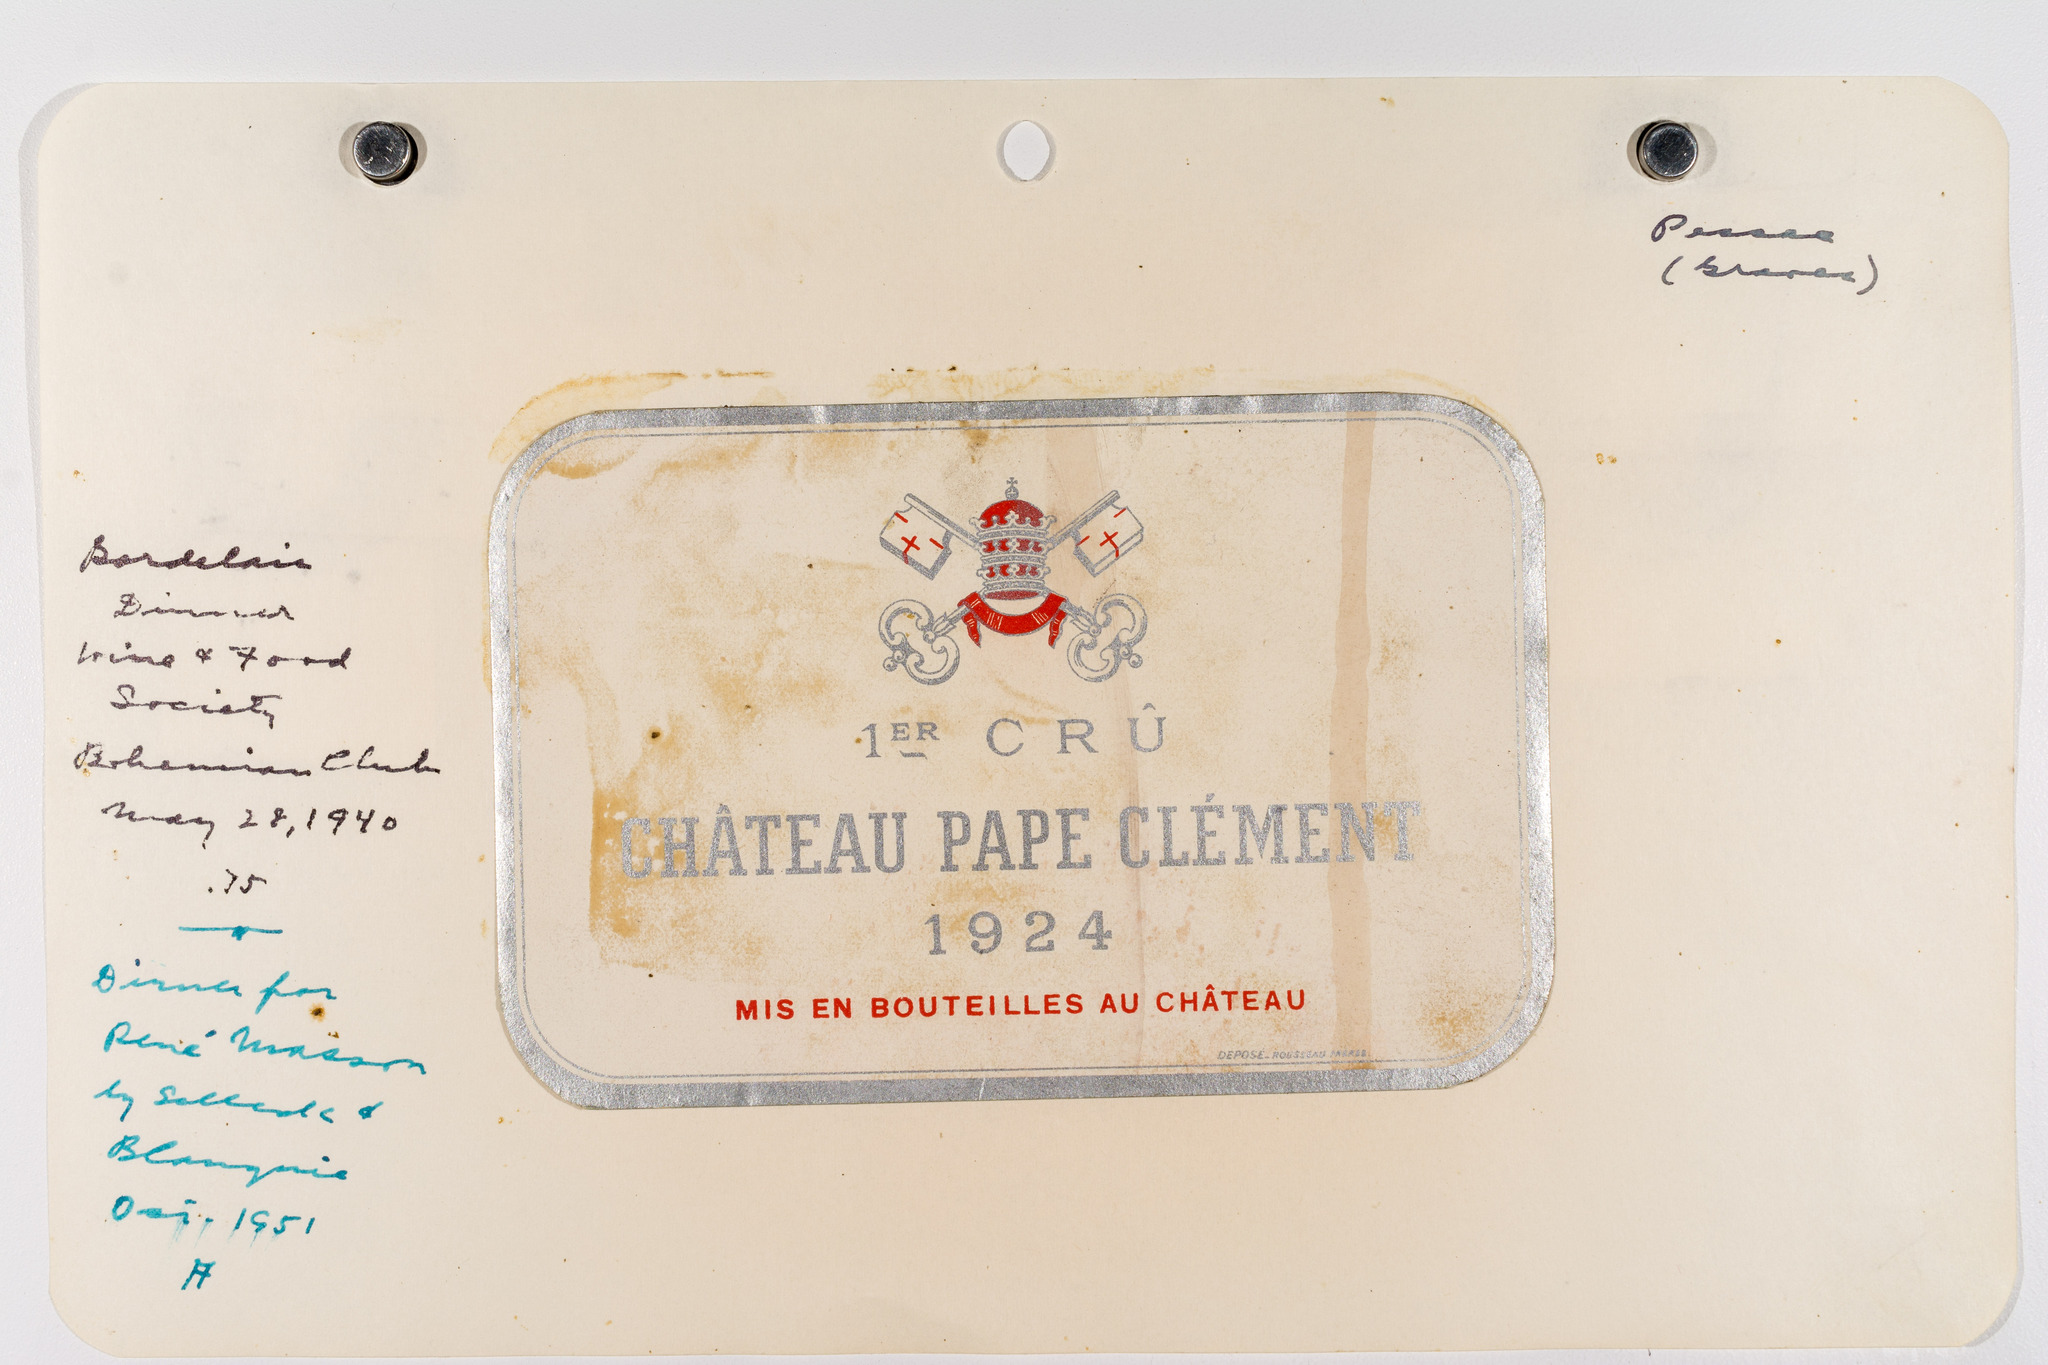 Pessac
(Graves)
Bordelais
Dinner
Wine & Food
Society
Bohemian Club
May 28, 1940
.75
Dinner for
René Masson
by &
Oct. 1951
A
1ER CRÛ
CHÂTEAU PAPE CLÉMENT
1924
MIS EN BOUTEILLES AU CHÂTEAU
DEPOSE_ROUSSEAU FRERES.